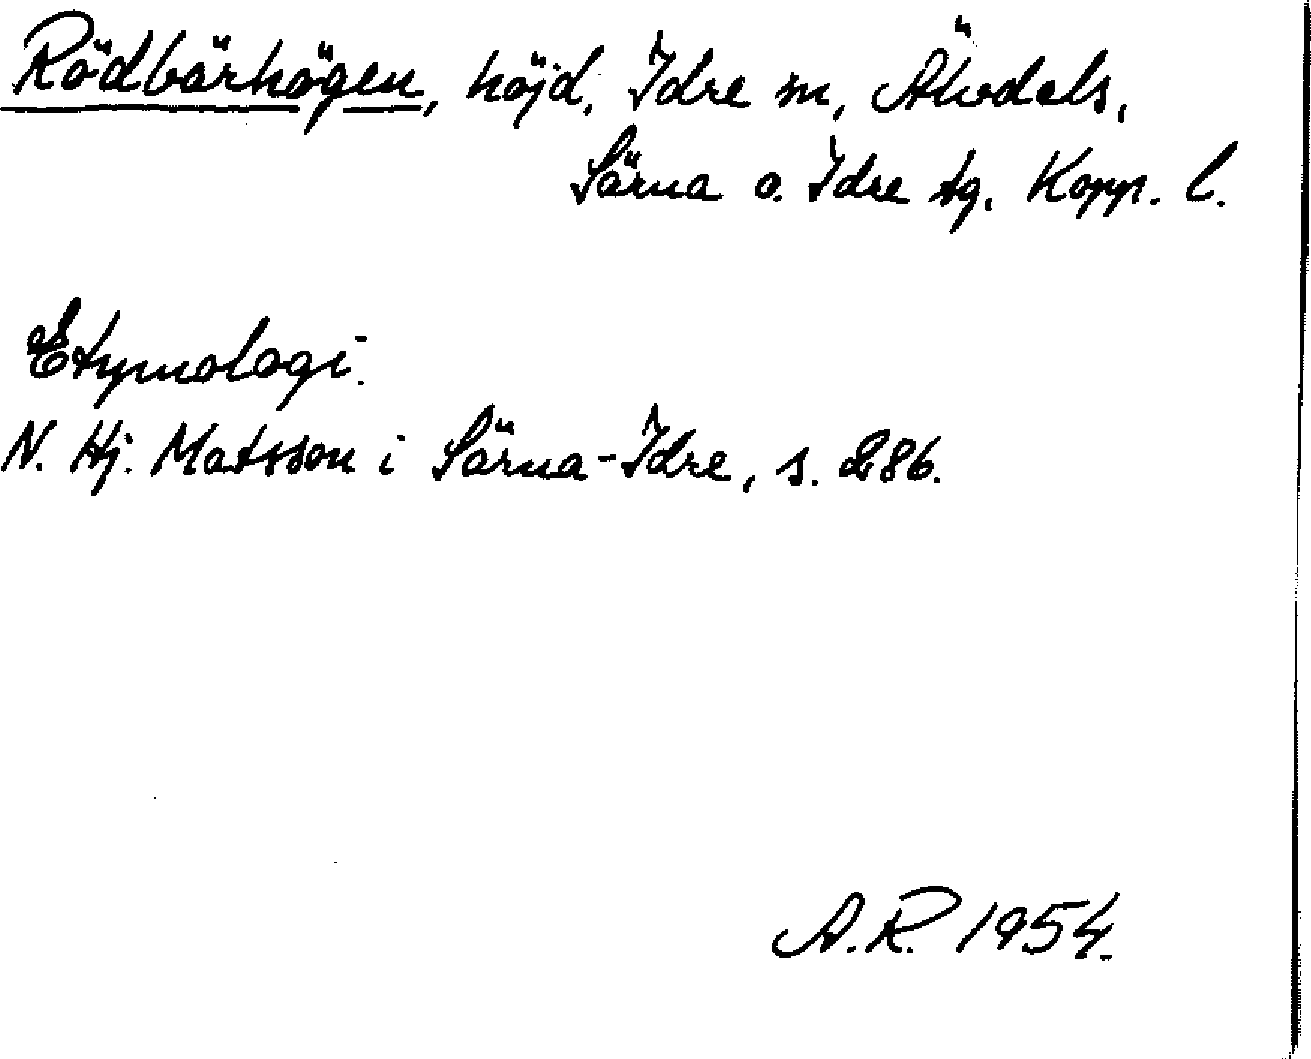 Rödbärhögen, höjd, Idre sn, Älvdals,
Särna o. Idre tg, Kopp. l.
Etymologi.
N. Hj. Matsson i Särna-Idre, s. 286.
A.R. 1954.